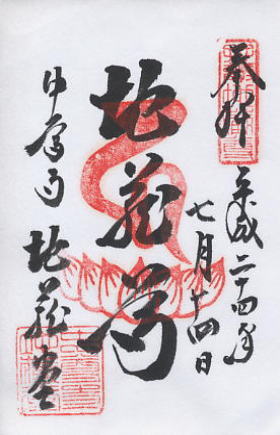 奉拝
平成二十四年
七月十四日
地蔵尊
地蔵堂